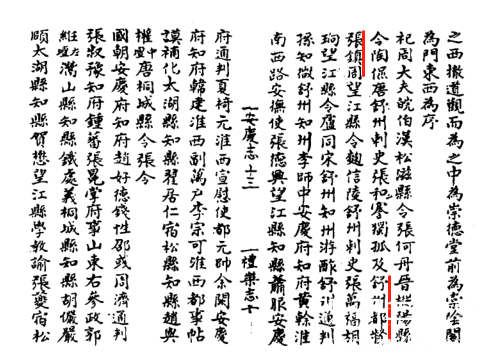 之西撤道觀而為之中為崇德堂前為崇陰閣
為門東西為序
祀周大夫皖伯漢松滋縣令張何丹晉樅陽縣
令陶侃唐舒州刺史張和譽獨孤及舒州都督
張鎮周望江縣令麴信陵舒州刺史張萬福胡
珦望江縣令盧同宋舒州知州游酢舒州通判
孫知微舒州知州李師中安慶府知府黃榦淮
南西路安撫使張德興望江縣知縣蕭服安慶
安慶志十三 禮樂志十
府通判夏椅元淮西宣慰使都元帥余闕安慶
府知府韓建淮西副萬戶李宗可淮西都事帖
謨補化太湖縣知縣翟居仁宿松縣知縣趙興
權唐桐城縣令張令
國朝安慶府知府趙好德錢性邵或周濟通判
張淑豫知府鍾蕃張冕掌府事山東右參政郭
灊山縣知縣鐵處義桐城縣知縣胡儼嚴
頤太湖縣知縣賀懋望江縣學教諭張夔宿松